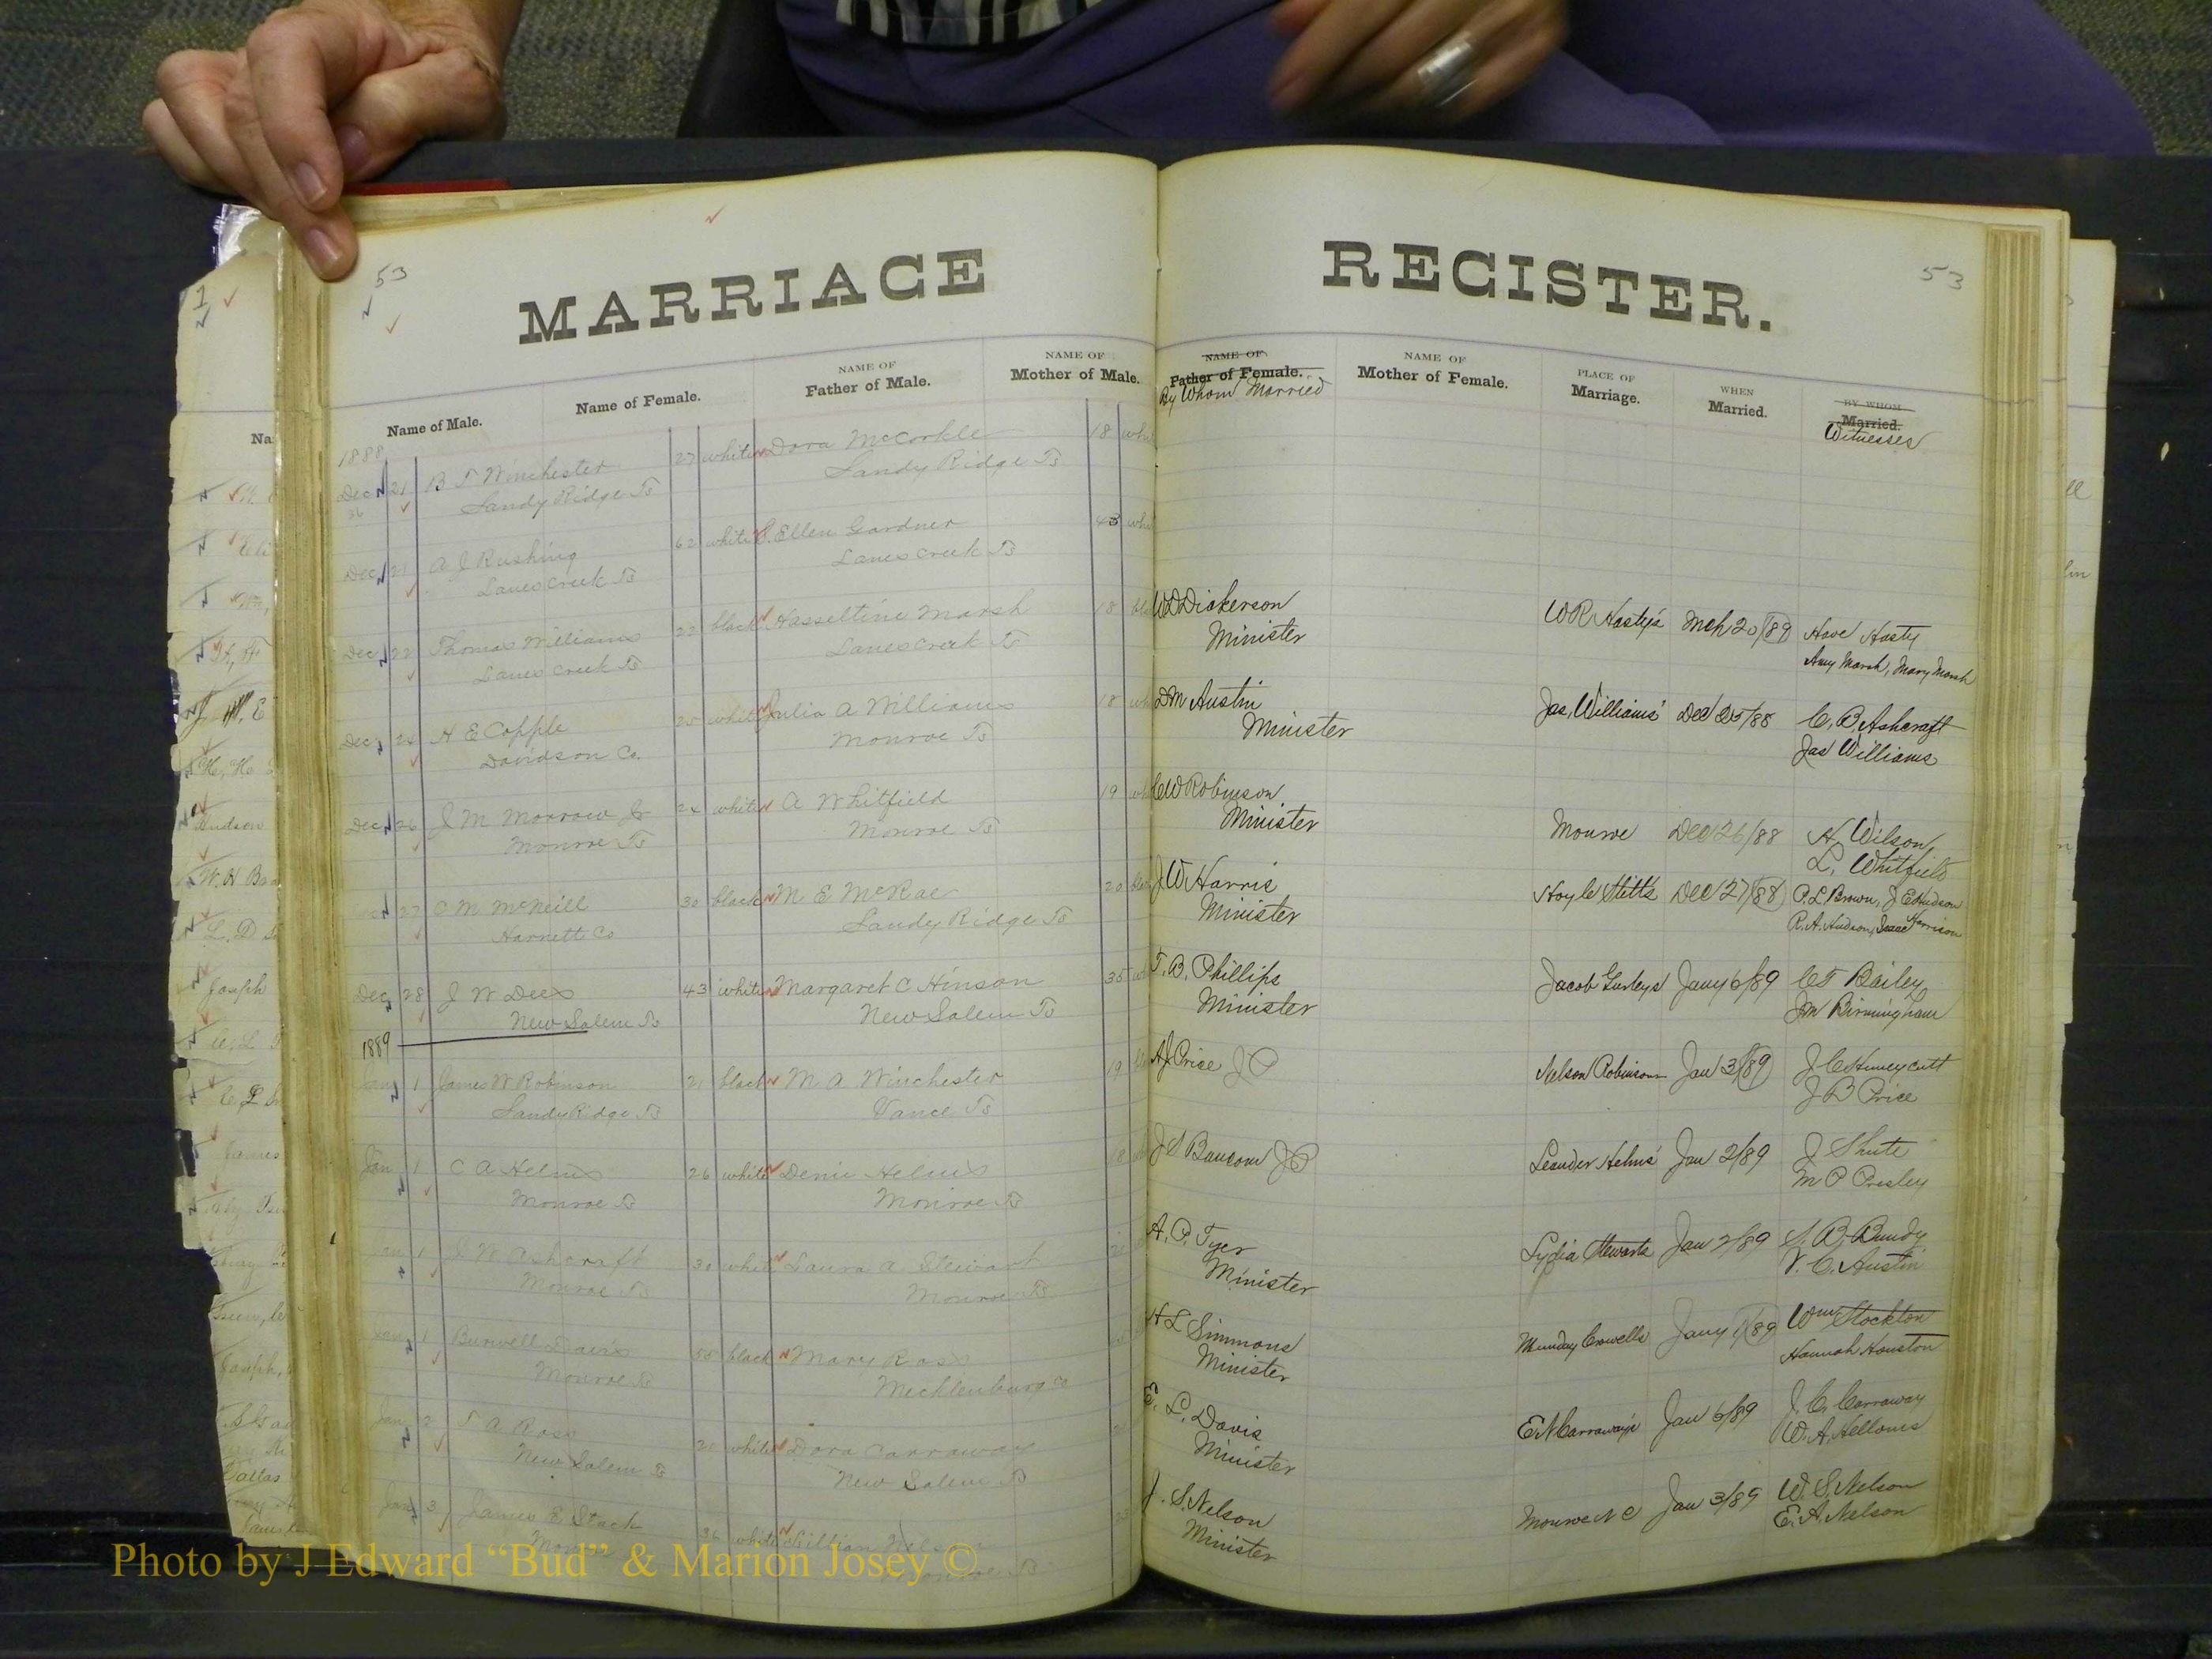 53
MARRIAGE
Name of Male.
Name of Female.
NAME OF
Father of Male.
NAME OF
Mother of Male.
1888
Dec 21 B T Winchester 27 white Dora McCorkle 18 whi
Sandy Ridge Ts Sandy Ridge Ts
Dec 21 A J Rushing 62 white S. Ellen Gardner 43 whi
Lanes Creek Ts Lanes Creek Ts
Dec 22 Thomas Williams 22 black Hasseltine Marsh 18 bla
Lanes Creek Ts Lanes Creek Ts
Dec 24 H E Copple 25 white Julia A Williams 18 wh
Davidson Co. Monroe Ts
Dec 26 J M Morrow Jr 24 white A Whitfield 19 wh
Monroe Ts Monroe Ts
27 C M McNeill 30 black M E McRae 20 bla
Harnett Co Sandy Ridge Ts
Dec 28 J W Dees 43 white Margaret C Hinson 35 w
New Salem Ts New Salem Ts
1889
Jan 1 James W Robinson 21 black M A Winchester 19
Sandy Ridge Ts Vance Ts
Jan 1 C A Helms 26 white Denie Helms 18
Monroe Ts Monroe Ts
Jan 1 J W Ashcraft 30 white Laura A Stewart
Monroe Ts Monroe Ts
Jan 1 Burwell Davis 50 black Mary Ross
Monroe Ts Mecklenburg Co
Jan 2 T A Ross 21 white Dora Carraway
New Salem Ts New Salem Ts
Jan 3 James E Stack 36 white Lillian
Monroe Ts
53
REGISTER.
NAME OF
Father of Female.
By Whom Married
NAME OF
Mother of Female.
PLACE OF
Marriage.
WHEN
Married.
BY WHOM
Married.
Witnesses
W D Dickerson WR Hasty's Mch 20/89 Hove Hasty
Minister Amy Marsh, Mary Marsh
DM Austin Jas, Williams' Dec 25/88 C. B. Ashcraft
Minister Jas Williams
CW Robinson Monroe Dec 26/88 H. Wilson,
Minister L. Whitfield
J W Harris Hoyle Stitts Dec 27/88 P. L. Brown, J E Hudson
Minister R. A. Hudson, Isaac Harrison
T. B. Phillips Jacob Gurleys Jany 6/89 CT Bailey
Minister JM Birmingham
AJ Price J P Nelson Robinson Jan 3/89 J C Huneycutt
J B Price
J S Baucom JP Leander Helms' Jan 2/89 J Shute
M P Presley
A. P. Tyer Lydia Stewarts Jan 2/89 S. B. Bundy
Minister V. C. Austin
H L Simmons Munday Crowells Jany 1/89 Wm Stockton
Minister Hannah Houston
E. L. Davis E N Carraway's Jan 6/89 J. C. Carraway
Minister W. A. Helloms
J. S. Nelson Monroe N C Jan 3/89 W. S. Nelson
Minister E. A. Nelson
Photo by J Edward “Bud” & Marion Josey ©